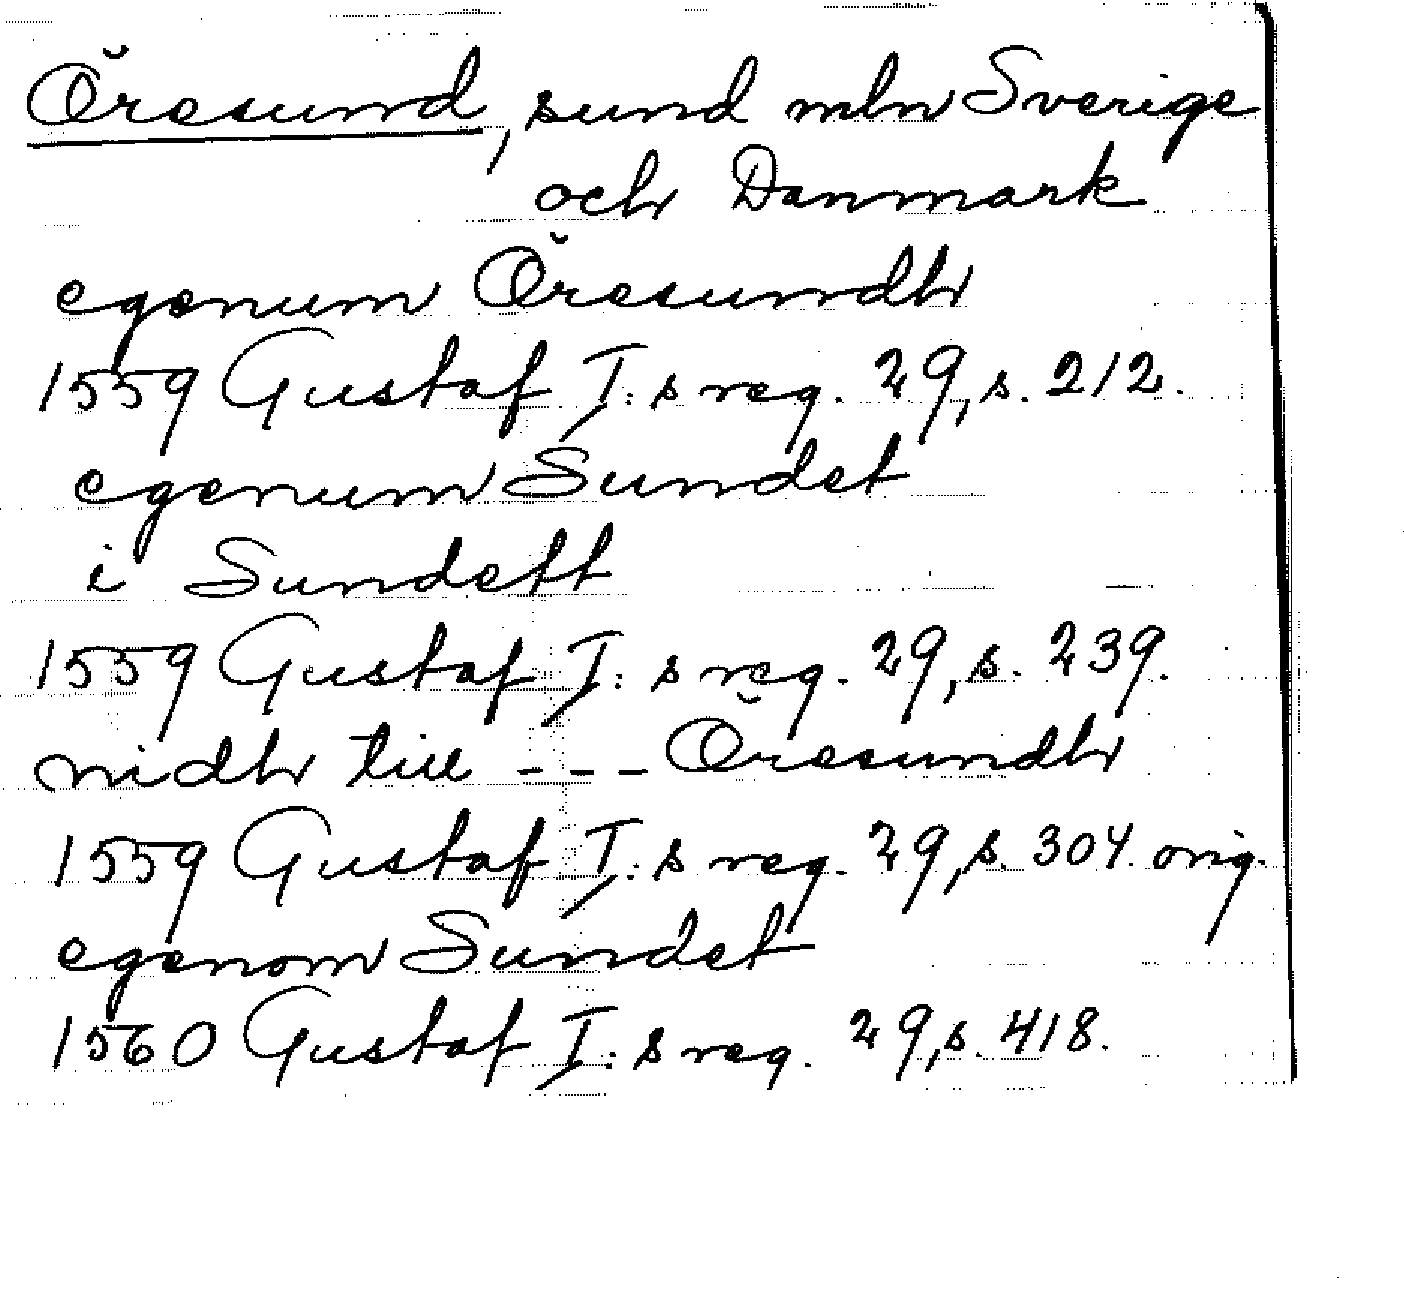 Öresund, sund mln Sverige
och Danmark
egenum Öresundh
1559 Gustaf I:s reg. 29, s. 212.
egenum Sundet
i Sundett
1559 Gustaf I:s reg. 29, s. 239.
nidh till --- Öresundh
1559 Gustaf I:s reg. 29, s. 304. orig.
egenom Sundet
1560 Gustaf I:s reg. 29, s. 418.